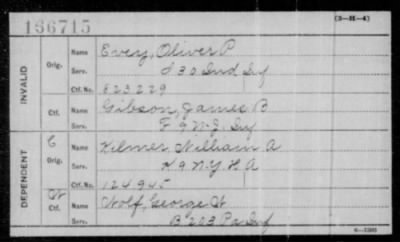 166715
(3-H-4)
INVALID
Orig.
Name Evey, Oliver P
Serv. D 30 Ind Inf
Ctf. No. 823229
Ctf.
Name Gibson, James B
Serv. F 9 N.J. Inf
DEPENDENT
C
Orig.
Name Kilmer, William A
Serv. K 9 N.Y. H A
Ctf. No. 124945
W
Ctf.
Name Wolf, George W
Serv. B 203 Pa Inf